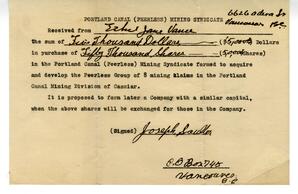 PORTLAND CANAL (PEERLESS) MINING SYNDICATE
Vancouver B.C.
Received from Jane
the sum of Thousand Dollars Dollars
in purchase of Fifty Thousand Shares
in the Portland Canal (Peerless) Mining Syndicate formed to acquire
and develop the Peerless Group of 8 mining claims in the Portland
Canal Mining Division of Cassiar.
It is proposed to form later a Company with a similar capital,
when the above shares will be exchanged for those in the Company.
(Signed) Joseph
P.O Box 740
Vancouver
B.C